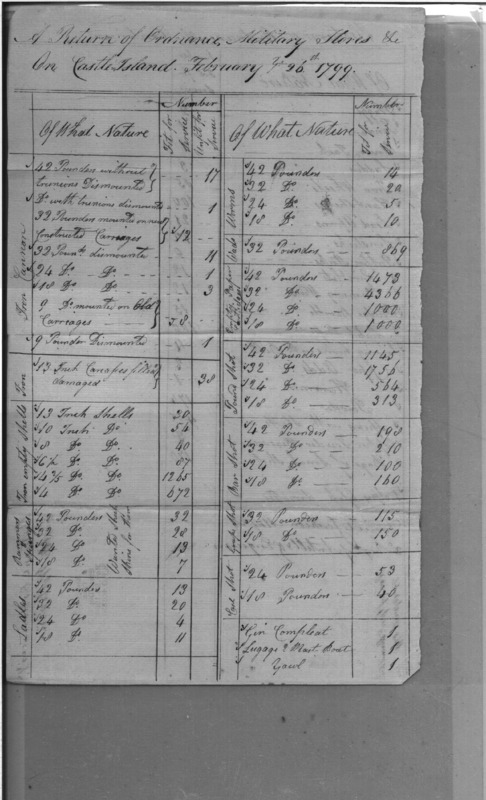 A Return of Ordnance, Military Stores &c
On Castle Island. February 26th 1799.
Of What Nature
Number
Fit for Service
Unfit for Service
Iron Cannon
42 Pounders without trunions Dismounted 17
Do with trunions dismounted 1
32 Pounders mounted on new Constructed Carriages 12
32 Pound. dismounted 11
24 Do Do 1
18 Do Do 3
9 Dismounted on Old Carriages 58
9 Pounder Dismounted 1
Iron
13 Inch damaged 38
Iron empty Shells
13 Inch Shells 20
10 Inch Do 54
8 Do Do 40
6½ Do Do 87
4⅖ Do Do 1265
4 Do Do 672
Rammers & Sponges
42 Pounders 32
32 Do 20
24 Do 13
18 Do 7
Ladles
42 Pounders 13
32 Do 20
24 Do 4
18 Do 11
Of What Nature
Number
Fit for Service
Worms
42 Pounders 14
32 Do 20
24 Do 5
18 Do 10
Wads
32 Pounders 869
42 Pounders 1473
32 Do 4366
24 Do 1000
18 Do 1000
Round Shot
42 Pounders 1145
32 Do 1756
24 Do 564
18 Do 313
Barr Shot
42 Pounders 198
32 Do 210
24 Do 100
18 Do 160
Grape Shot
32 Pounders 115
18 Do 150
Case Shot
24 Pounders 53
18 Pounders 40
Gin Compleat 1
Lugage Boat 1
Yawl 1